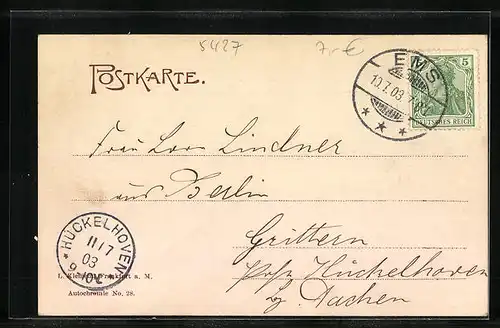 5427 7,- €
POSTKARTE.
EMS
10.7.03.
5
DEUTSCHES REICH
Frau Lindner
aus Berlin
Grittern
Post Hückelhoven
b/ Aachen
HÜCKELHOVEN
11/7
03
L. Frankfurt a. M.
Autochromie No. 28.